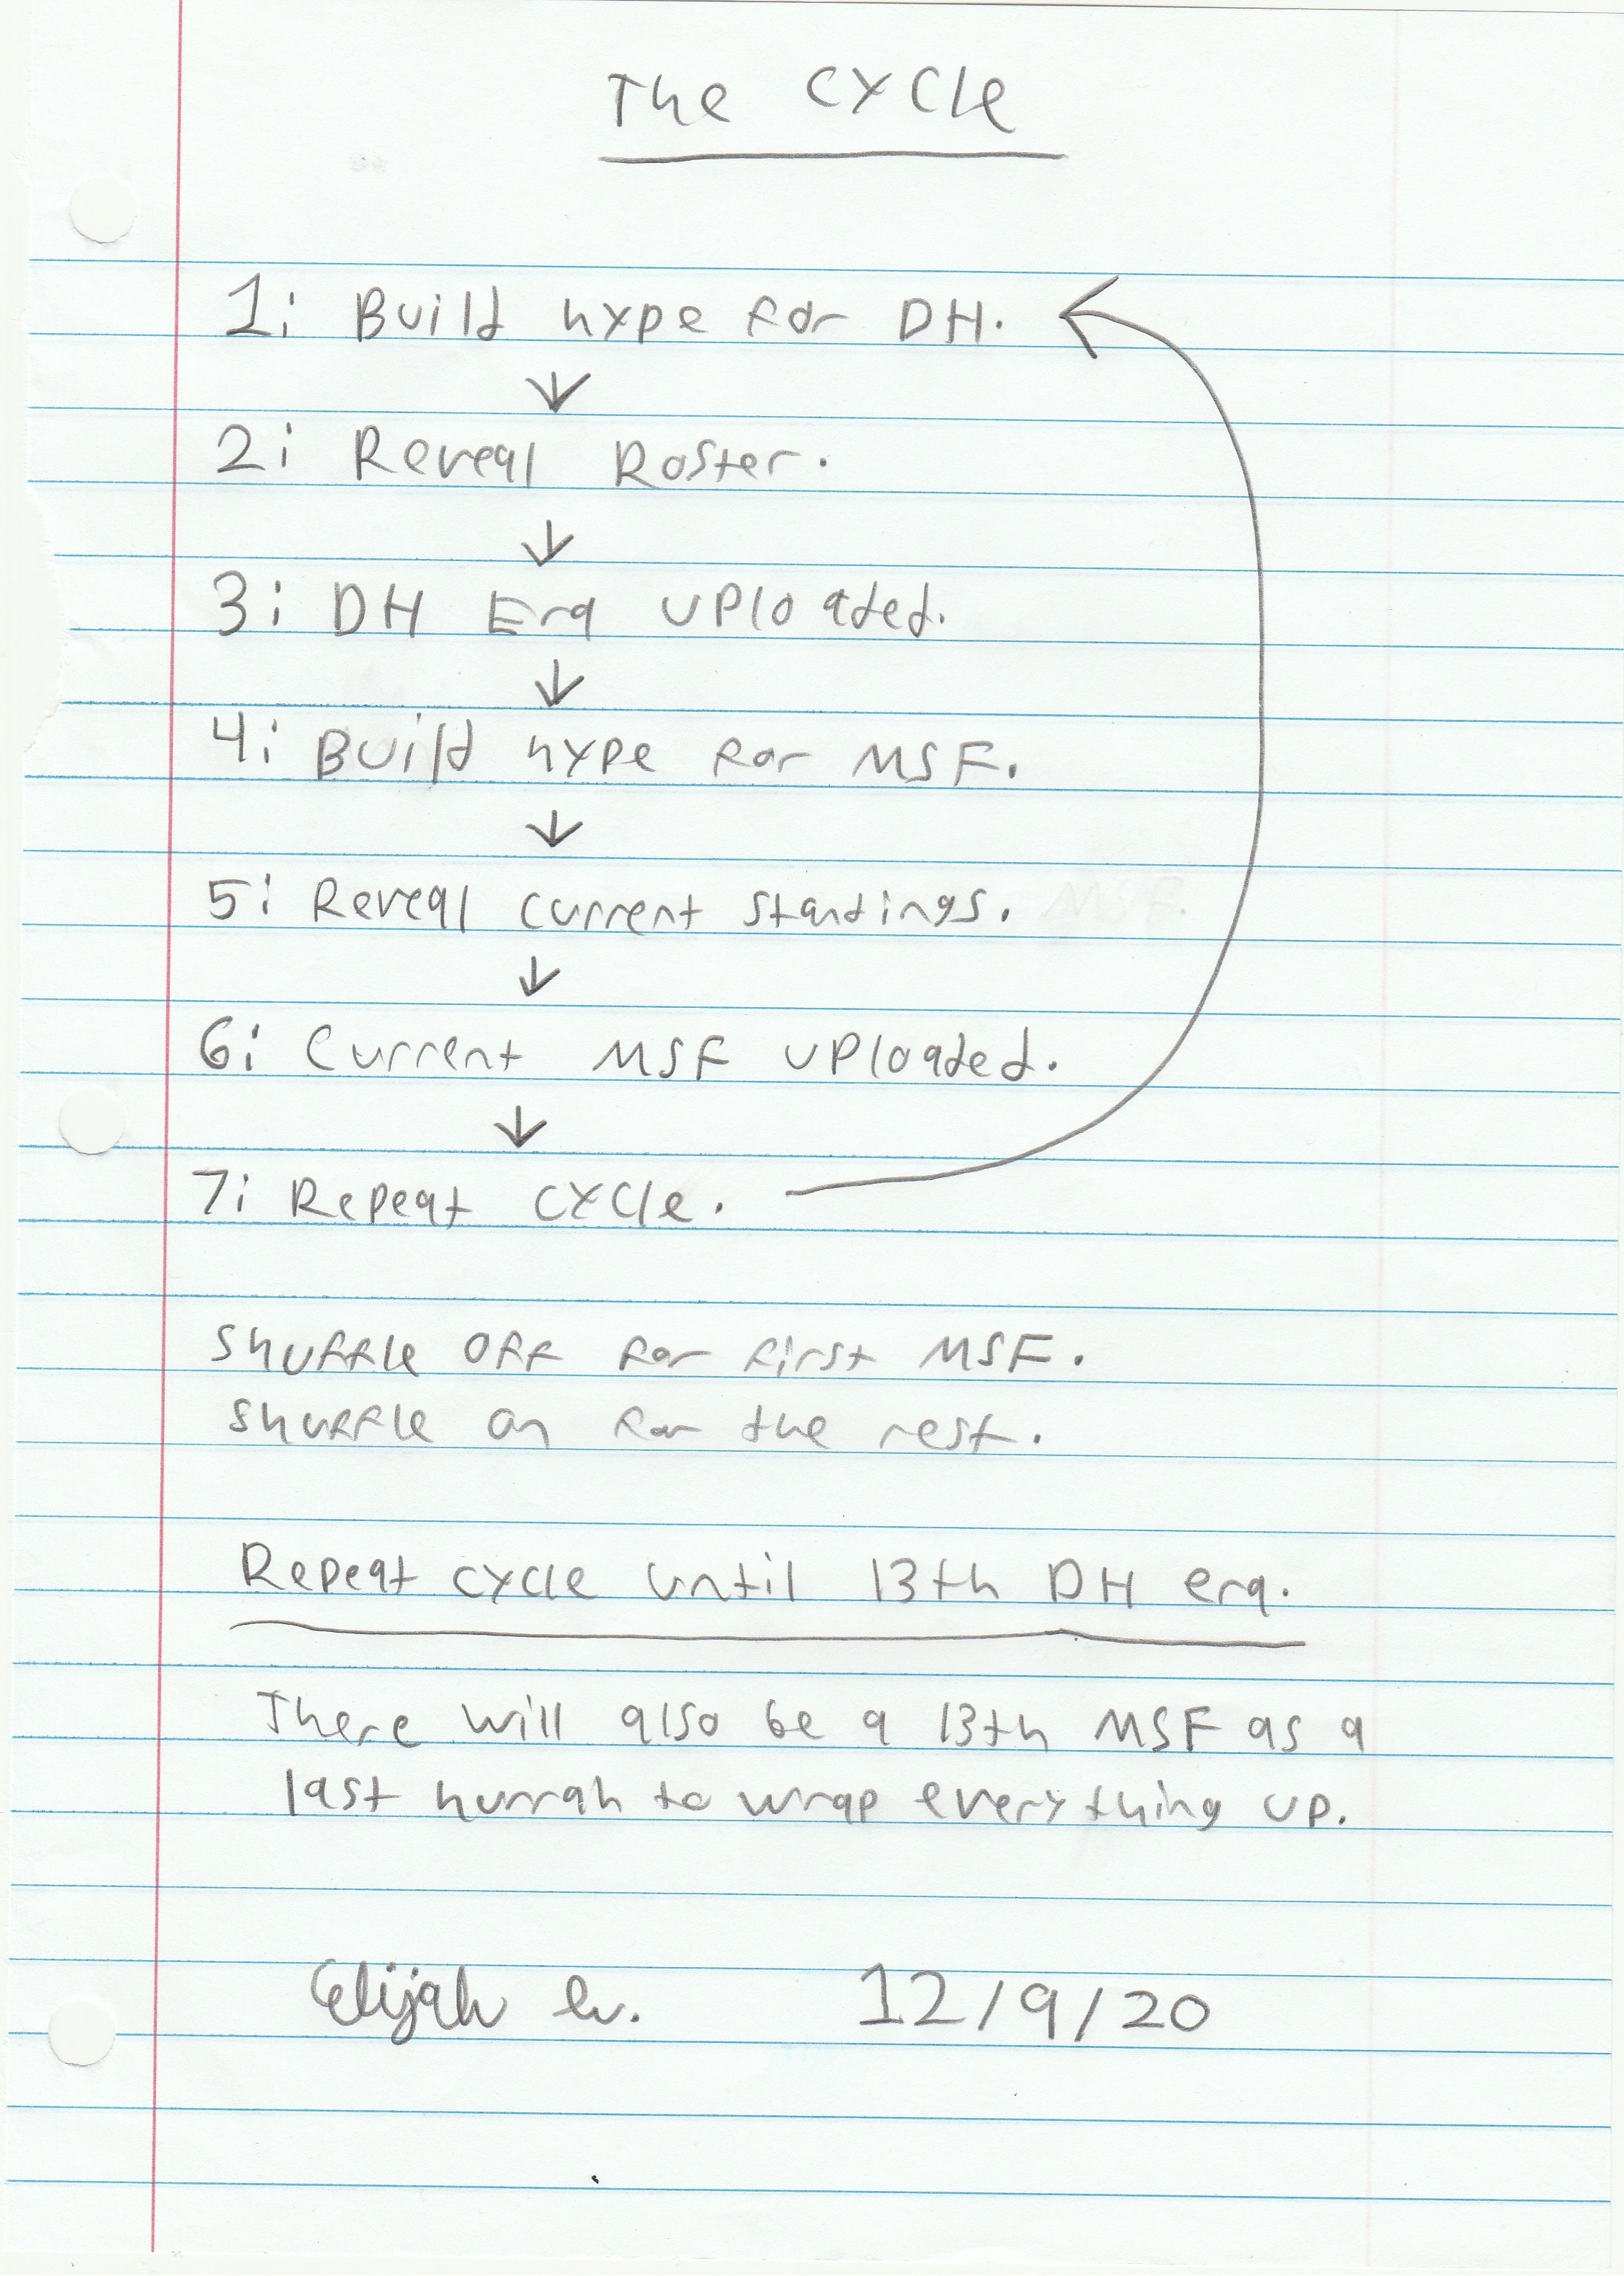 The Cycle
1: Build hype for DH.
2: Reveal Roster.
3: DH Era Uploaded.
4: Build hype for MSF.
5: Reveal current standings. MSF.
6: Current MSF uploaded.
7: Repeat cycle.
Shuffle off for first MSF.
Shuffle on for the rest.
Repeat cycle until 13th DH era.
There will also be a 13th MSF as a
last hurrah to wrap everything up.
Elijah 12/9/20